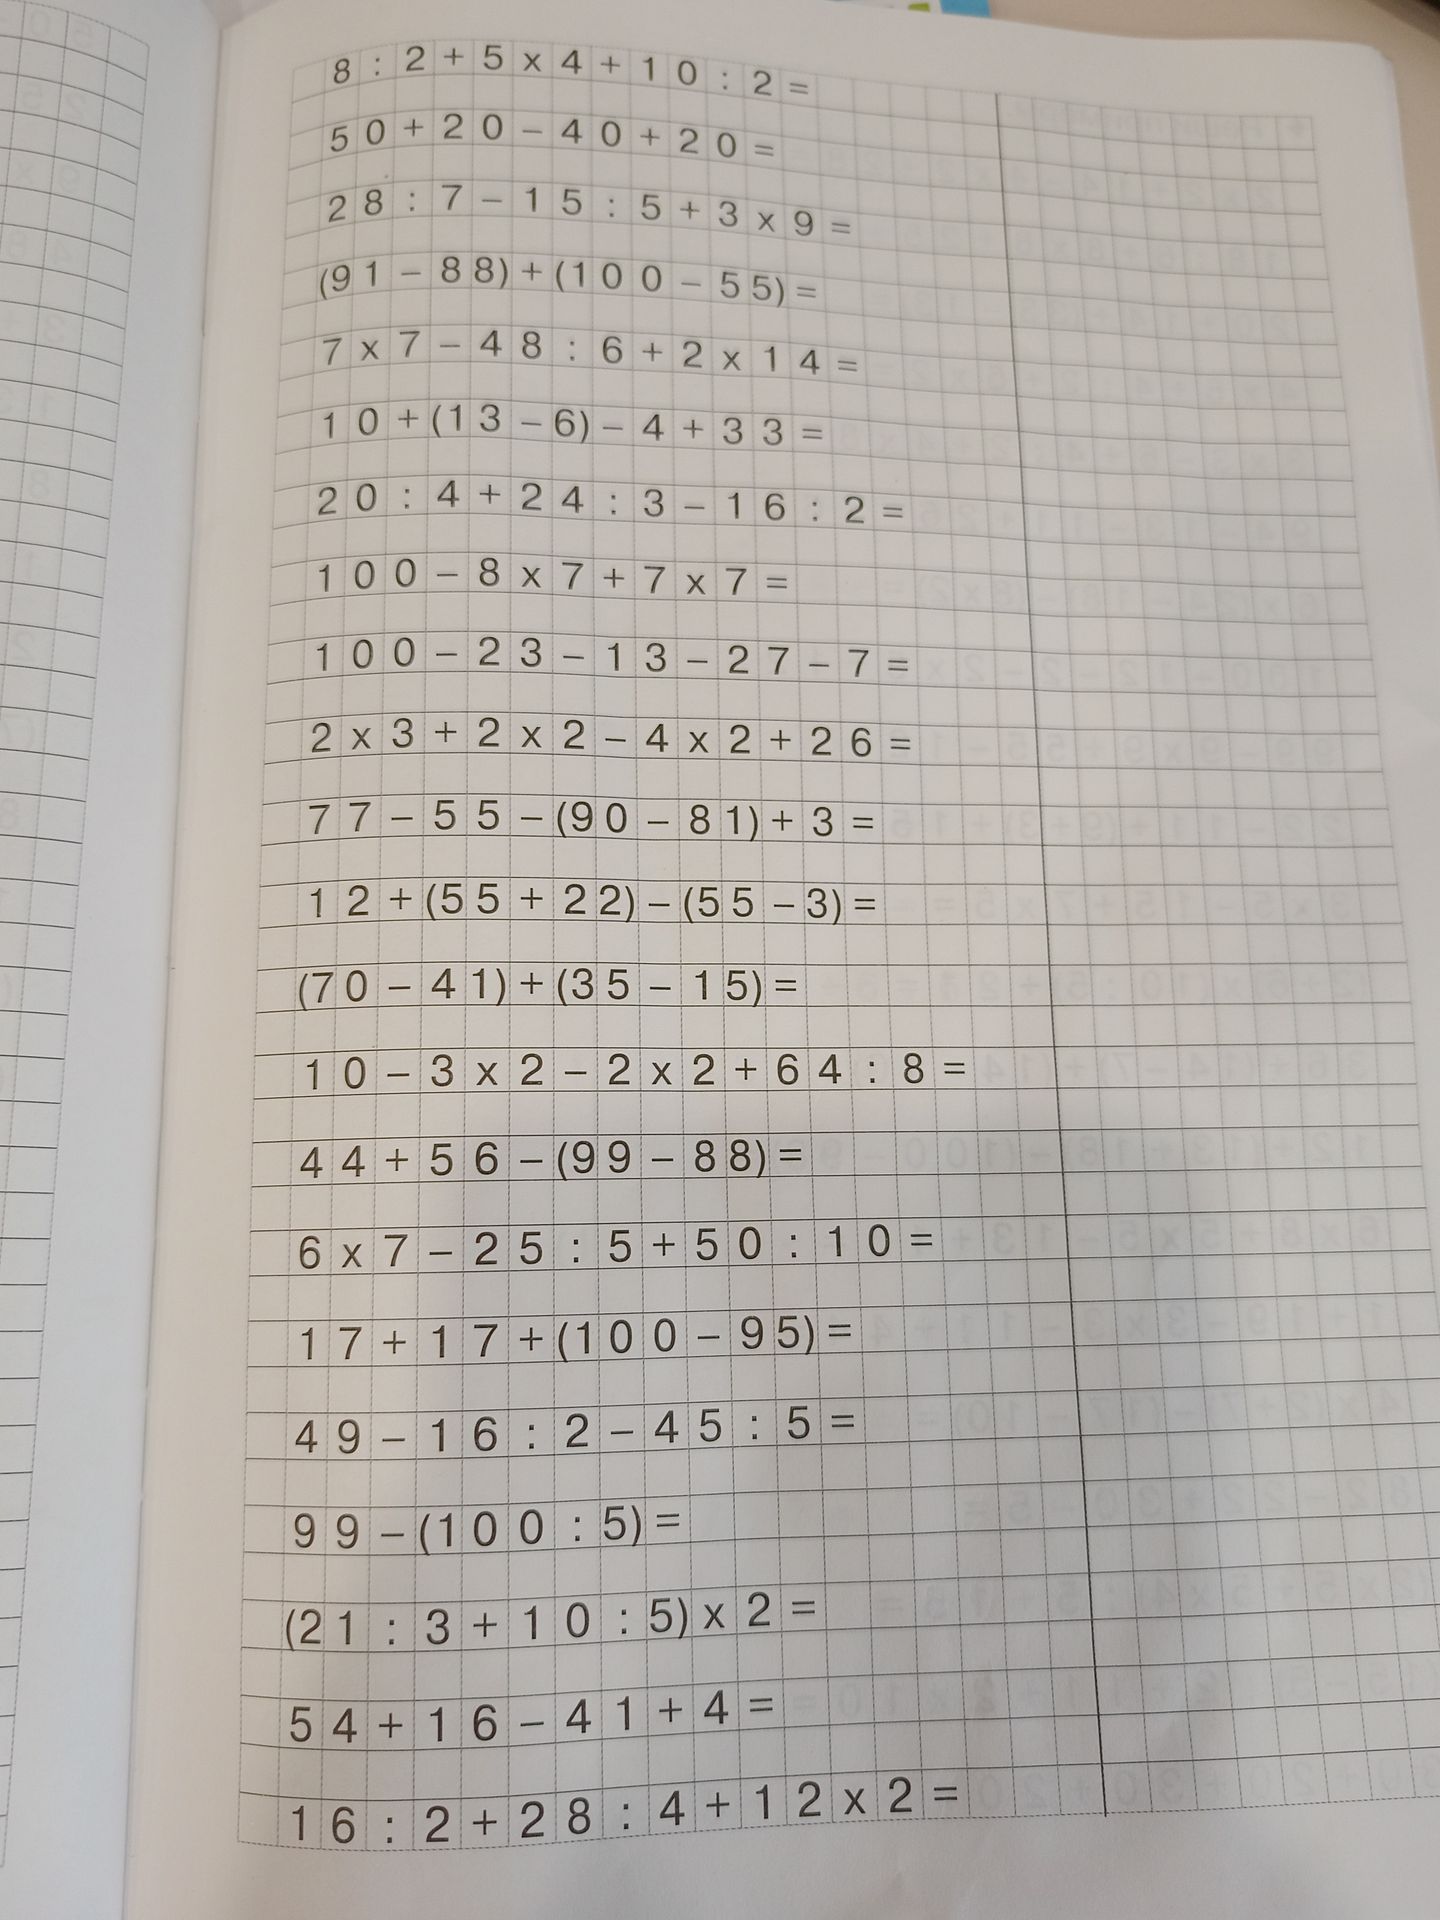 8 : 2 + 5 x 4 + 10 : 2 =
50 + 20 – 40 + 20 =
28 : 7 – 15 : 5 + 3 x 9 =
(91 – 88) + (100 – 55) =
7 x 7 – 48 : 6 + 2 x 14 =
10 + (13 – 6) – 4 + 33 =
20 : 4 + 24 : 3 – 16 : 2 =
100 – 8 x 7 + 7 x 7 =
100 – 23 – 13 – 27 – 7 =
2 x 3 + 2 x 2 – 4 x 2 + 26 =
77 – 55 – (90 – 81) + 3 =
12 + (55 + 22) – (55 – 3) =
(70 – 41) + (35 – 15) =
10 – 3 x 2 – 2 x 2 + 64 : 8 =
44 + 56 – (99 – 88) =
6 x 7 – 25 : 5 + 50 : 10 =
17 + 17 + (100 – 95) =
49 – 16 : 2 – 45 : 5 =
99 – (100 : 5) =
(21 : 3 + 10 : 5) x 2 =
54 + 16 – 41 + 4 =
16 : 2 + 28 : 4 + 12 x 2 =